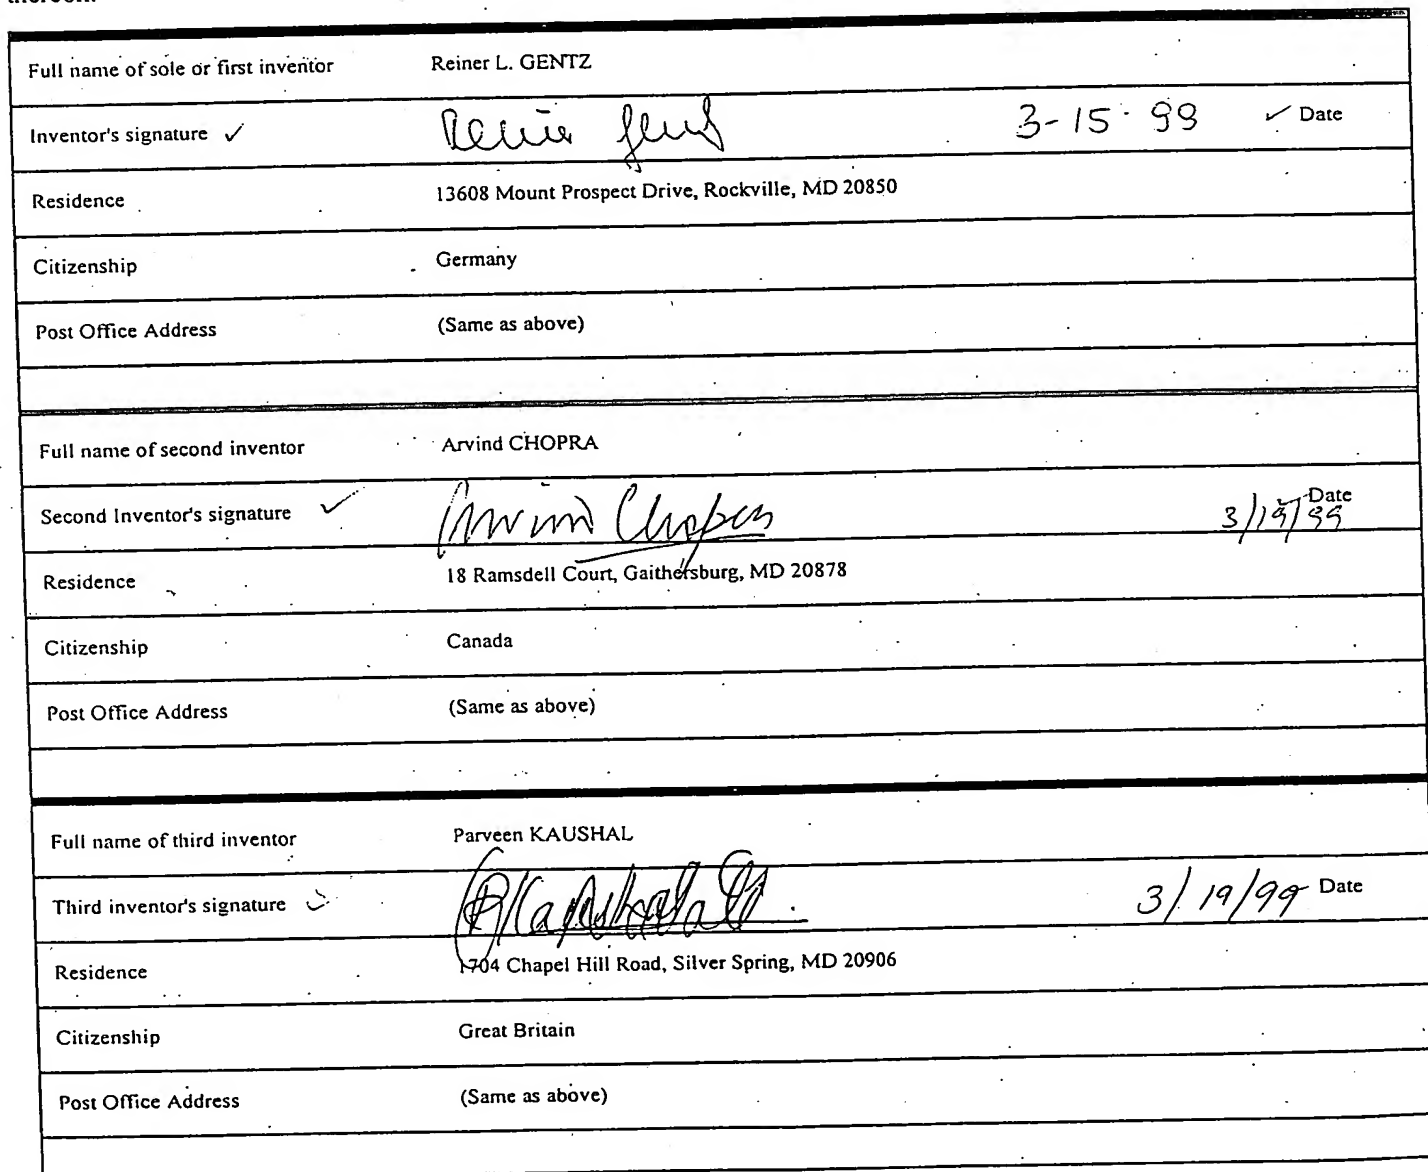 Full name of sole or first inventor Reiner L. GENTZ
Inventor's signature ✓ 3-15-99 ✓ Date
Residence 13608 Mount Prospect Drive, Rockville, MD 20850
Citizenship Germany
Post Office Address (Same as above)
Full name of second inventor Arvind CHOPRA
Second Inventor's signature ✓ Arvind Chopra 3/19/99 Date
Residence 18 Ramsdell Court, Gaithersburg, MD 20878
Citizenship Canada
Post Office Address (Same as above)
Full name of third inventor Parveen KAUSHAL
Third inventor's signature 3/19/99 Date
Residence 1704 Chapel Hill Road, Silver Spring, MD 20906
Citizenship Great Britain
Post Office Address (Same as above)